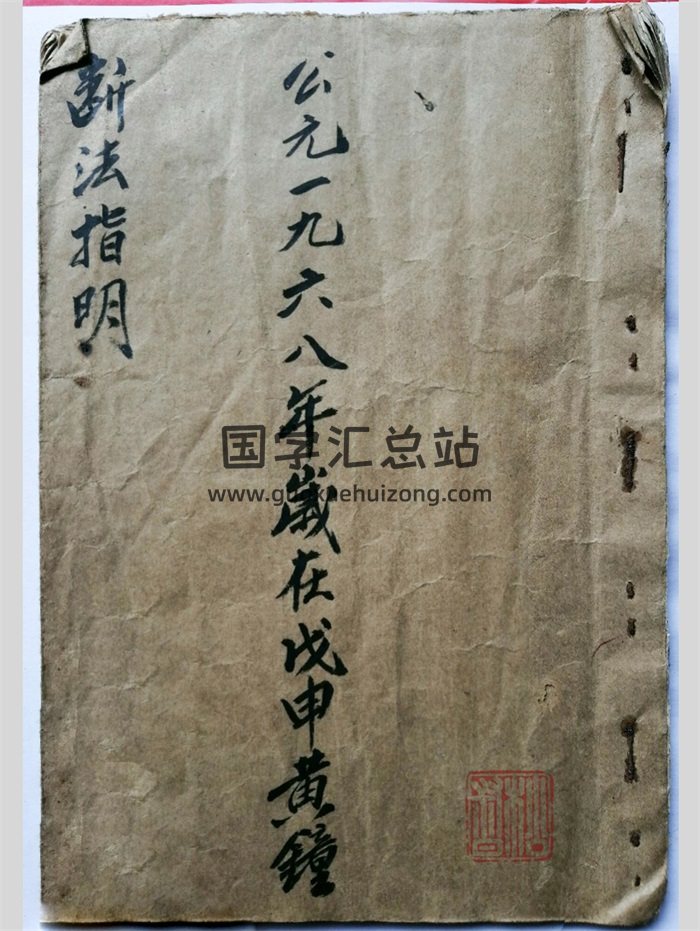 公元一九六八年歲在戊申黄鐘
断法指明
国学汇总站
www.guoxuehuizong.com